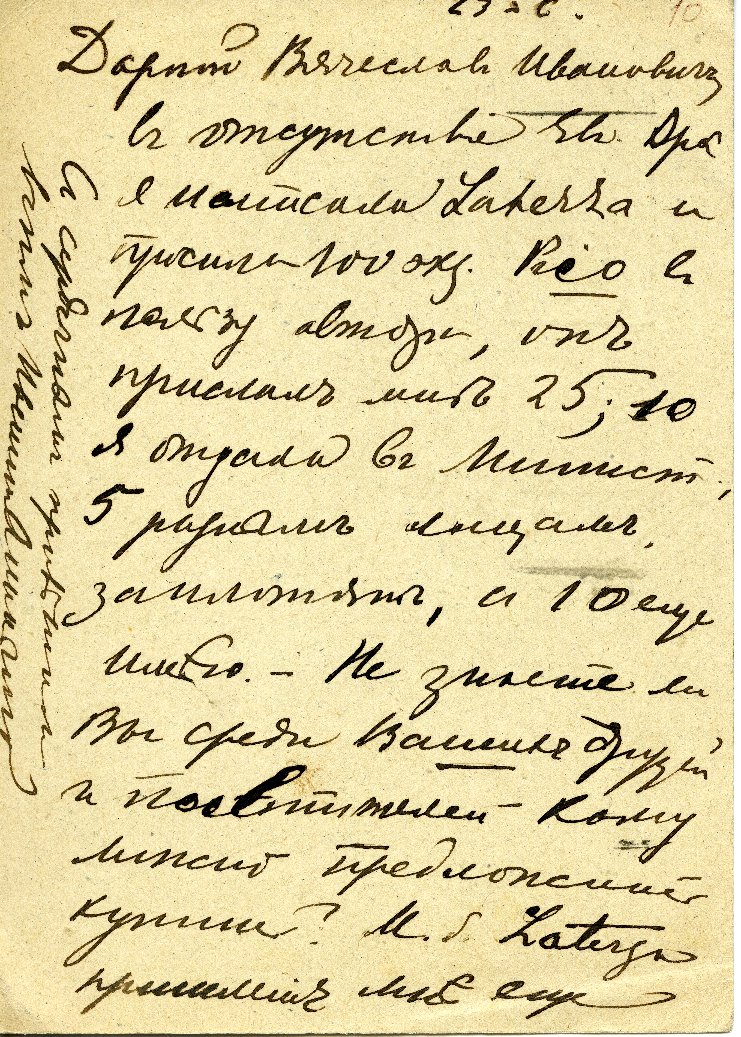 10
Дорогой Вячеслав Иванович
в отсутствие Ев.
я написала Laterza и
просила 100 экз. в
пользу автора, онъ
прислалъ мнѣ 25; 10
я отдала въ Минист.,
5 разнымъ лицамъ,
заплатятъ, а 10 еще
имѣю. – Не знаете ли
Вы среди Вашихъ друзей
и посѣтителей кому
можно предложить
купить? М. б. Laterza
пришлетъ мнѣ еще
С сердечнымъ привѣтомъ